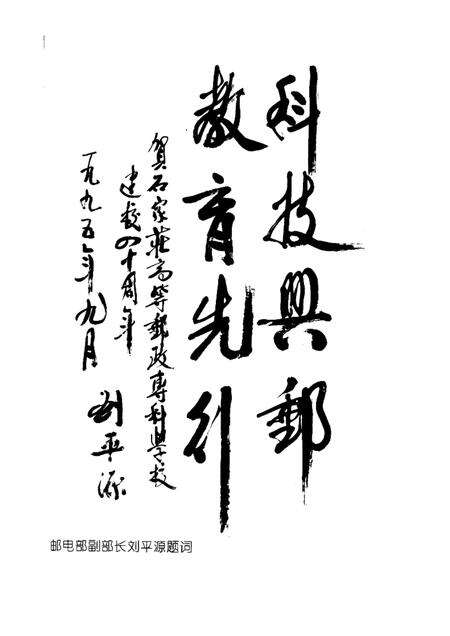 科技興郵
教育先行
賀石家莊高等郵政專科學校
建校四十周年
一九九五年九月
刘平源
邮电部副部长刘平源题词